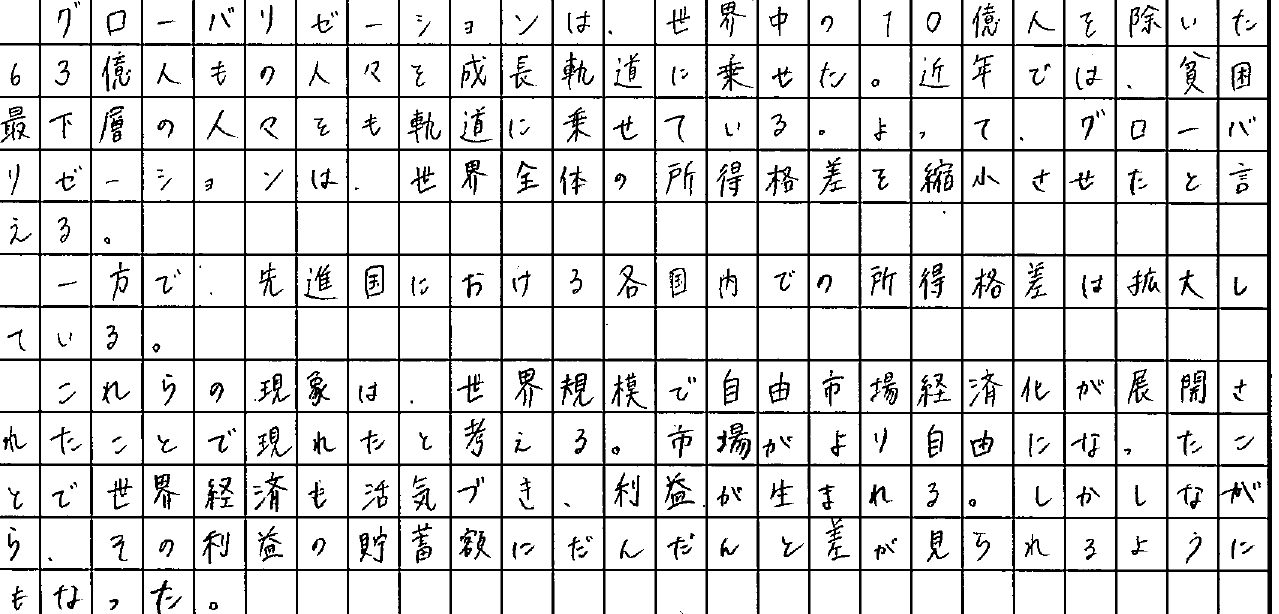 グローバリゼーションは、世界中の10億人を除いた
63億人もの人々を成長軌道に乗せた。近年では、貧困
最下層の人々をも軌道に乗せている。よって、グローバ
リゼーションは、世界全体の所得格差を縮小させたと言
える。
一方で、先進国における各国内での所得格差は拡大し
ている。
これらの現象は、世界規模で自由市場経済化が展開さ
れたことで現れたと考える。市場がより自由になったこ
とで世界経済も活気づき、利益が生まれる。しかしなが
ら、その利益の貯蓄額にだんだんと差が見られるように
もなった。